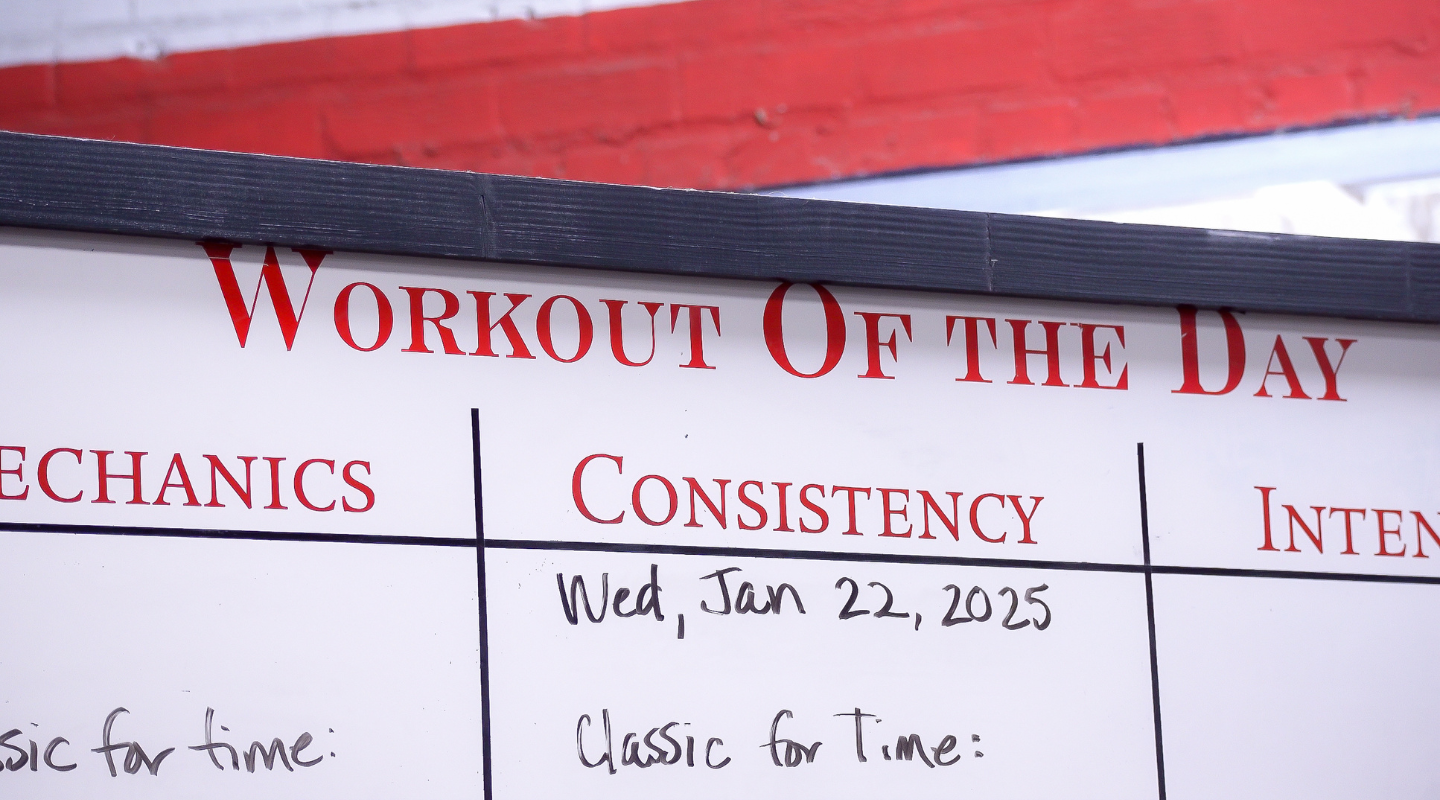 Workout Of the Day
echanics
Consistency
Inten
Wed, Jan 22, 2025
ssic for time:
Classic for Time: